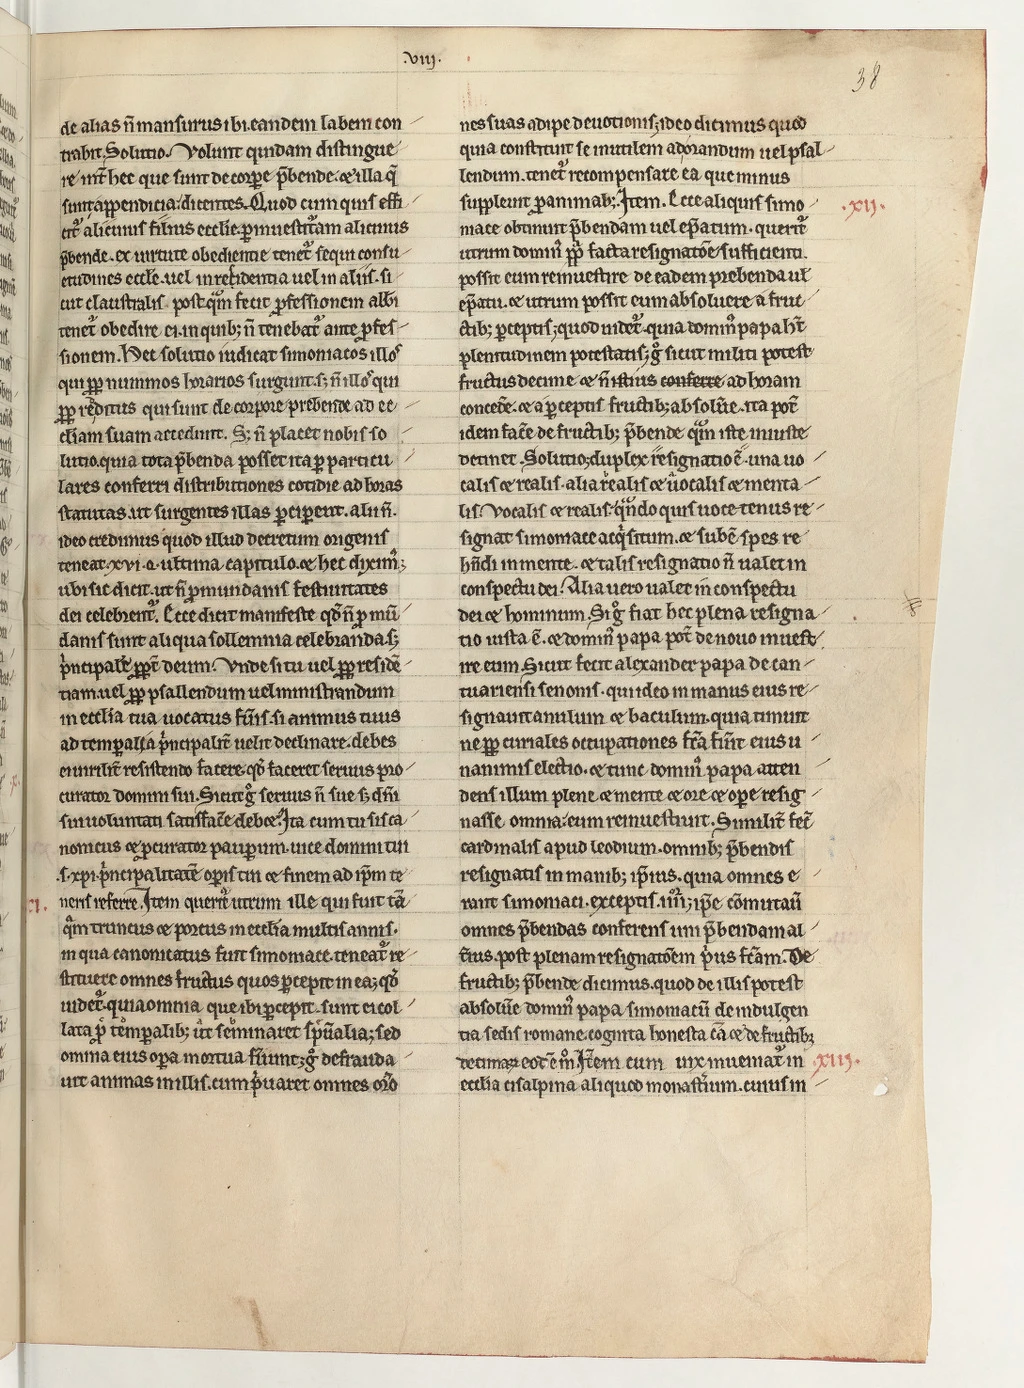 .viii.
38
de alias n̄ mansurus ibi. eandem labem con
trahit. Solutio. Volunt quidam distingue
re int̄ hec que sunt de corꝑe p̄bende. ⁊ illa q̄
sunt appendicia. dicentes. Quod cum quis effi
cit᷑ alicuius filius ecclīe. ꝑ inuestit᷑am alicuius
p̄bende. ex uirtute obedientie tenet᷑ sequi consu
etudines eccl̄e. uel in residentia uel in aliis. si
cut claustralis postq̄m fecit ꝓfessionem abb̄i
tenet᷑ obedire ei. in quib; n̄ tenebat᷑ ante ꝓfes
sionem. Hec solutio iudicat simoniacos illos
qui ꝓꝑ nummos horarios surgunt. s; n̄ illos qui
ꝓꝑ redditus qui sunt de corpore prebende ad ec
clesiam suam accedunt. S; n̄ placet nobis so
lutio. quia tota p̄benda posset ita ꝑ particu
lares conferri distributiones cotidie ad horas
statutas. ut surgentes illas ꝑciperent. alii n̄.
ideo credimus quod illud decretum origenis
teneat. xvi. q. ultima capitulo. ⁊ hec dixim᷒;
ubi sic dicit. ut n̄ pro mundanis festiuitates
dei celebrent᷑. Ecce dicit manifeste qd̄ n̄ ꝓ mū
danis sunt aliqua sollemnia celebranda. s;
p̄ncipalit̄ ꝓꝑt̄ deum. Vnde si tu uel ꝓꝑ residē
tiam. uel ꝓꝑ psallendum uel ministrandum
in eccl̄ia tua uocatus fūis. si animus tuus
ad temꝑalia p̄ncipalit̄ uelit declinare. debes
ei uirilit̄ resistendo facere. qd̄ faceret seruus pro
curator domini sui. Sicut g̊ seruus n̄ sue s; dn̄i
sui uoluntati satisfac̄e debet. Ita cum tu sis ca
nonicus ⁊ ꝓcurator pauꝑum. uice domini tui
.s. xp̄i. p̄ncipalitatē oꝑis tui ⁊ finem ad ip̄m te
neris referre. Item querit᷑ utrum ille qui fuit tā
q̄m truncus ⁊ porcus in eccl̄ia multis annis.
in qua canonicatus fuit simoniace. teneat᷑ re
stituere omnes fructus quos ꝑcepit in ea; qd̄
uidet᷑. quia omnia que ibi ꝑcepit. sunt ei col
lata ꝓ temꝑalib; ut seminaret sp̄ualia; sed
omnia eius oꝑa mortua fūunt; g̊ defrauda
uit animas in illis. cum p̄uaret omnes or̄o
nes suas adipe deuotionis; ideo dicimus quod
quia constituit se inutilem ad orandum uel psal
lendum. tenet᷑ recompensare ea que minus
suppleuit ꝑ animab; Item. Ecce aliquis simo
.xii.
niace obtinuit p̄bendam uel ep̄atum. querit᷑
utrum domin᷒ pp̄ facta resignatōe sufficienti.
possit eum reinuestire de eadem prebenda ul̄
ep̄atu. ⁊ utrum possit eum absoluere a fruc
tib; ꝑceptis; quod uidet᷑. quia domin᷒ papa ht̄
plenitudinem potestatis; g̊ sicut militi potest
fructus decime ⁊ n̄ istius conferre ad horam
conced̄e. ⁊ a ꝑceptis fructib; absolūe. ita pot̄
idem fac̄e de fructib; p̄bende q̄m iste iniuste
detinet. Solutio; duplex resignatio ē. una uo
calis ⁊ realis. alia realis ⁊ uocalis ⁊ menta
lis. Vocalis ⁊ realis. qn̄do quis uoce tenus re
signat simoniace acq̄situm. ⁊ subē spes re
hn̄di in mente. ⁊ talis resignatio n̄ ualet in
conspectu dei. Alia uero ualet in conspectu
dei ⁊ hominum. Si g̊ fiat hec plena resigna
tio iusta ē. ⁊ domin᷒ papa pot̄ de nouo inuest
ire eum. Sicut fecit alexander papa de can
tuariensi senonis. qui ideo in manus eius re
signauit anulum ⁊ baculum. quia timuit
ne ꝓꝑ curiales occupationes fc̄a fūit eius u
nanimis electio. ⁊ tunc domin᷒ papa atten
dens illum plene ⁊ mente ⁊ ore ⁊ oꝑe resig
nasse omnia. eum reinuestiuit. Similit̄ fec̄
cardinalis apud leodium. omnib; p̄bendis
resignatis in manib; ip̄ius. quia omnes e
rant simoniaci. exceptis .iiii; ip̄e cōmutauit
omnes p̄bendas conferens uni p̄bendam al
t̄ius. post plenam resignatōem p̄us fc̄am. De
fructib; p̄bende dicimus. quod de illis potest
absolūe domin᷒ papa simoniacū de indulgen
tia sedis romane. cognita honesta cā. ⁊ de fructib;
decimaꝝ eodē m̊. Item cum uix inueniat᷑ in
.xiii.
eccl̄ia cisalpina aliquod monast̄ium. cuius in